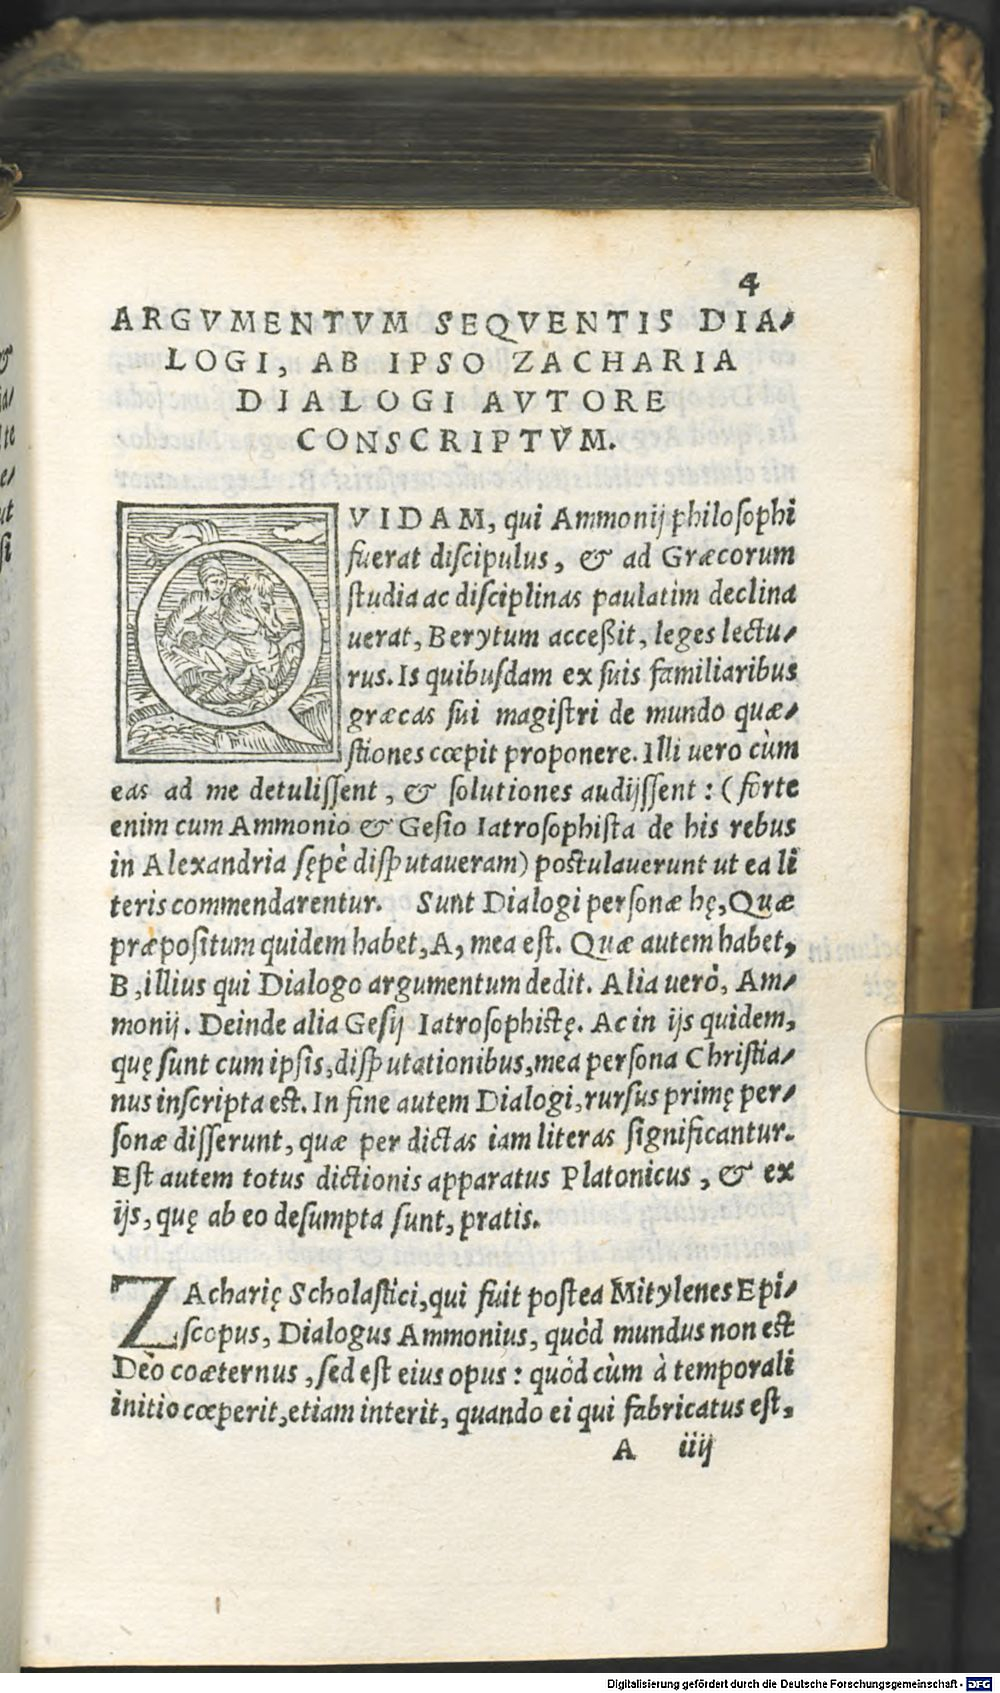 4
ARGVMENTVM SEQVENTIS DIA-
LOGI, AB IPSO ZACHARIA
DIALOGI AVTORE
CONSCRIPTVM.
QVIDAM, qui Ammonij philoſophi
fuerat diſcipulus, & ad Græcorum
ſtudia ac diſciplinas paulatim declina
uerat, Berytum acceßit, leges lectu-
rus. Is quibuſdam ex ſuis familiaribus
græcas ſui magiſtri de mundo quæ-
ſtiones cœpit proponere. Illi uero cùm
eas ad me detuliſſent, & ſolutiones audijſſent: (forte
enim cum Ammonio & Geſio Iatroſophiſta de his rebus
in Alexandria ſępè diſputaueram) poſtulauerunt ut ea li
teris commendarentur. Sunt Dialogi perſonæ hę, Quæ
præpoſitum quidem habet, A, mea eſt. Quæ autem habet,
B, illius qui Dialogo argumentum dedit. Alia uerò, Am-
monij. Deinde alia Geſij Iatroſophiſtę. Ac in ijs quidem,
quę ſunt cum ipſis, diſputationibus, mea perſona Chriſtia-
nus inſcripta eſt. In fine autem Dialogi, rurſus primę per-
ſonæ diſſerunt, quæ per dictas iam literas ſignificantur.
Eſt autem totus dictionis apparatus Platonicus, & ex
ijs, quę ab eo deſumpta ſunt, pratis.
ZAcharię Scholaſtici, qui fuit poſtea Mitylenes Epi-
ſcopus, Dialogus Ammonius, quòd mundus non eſt
Deo coæternus, ſed eſt eius opus: quòd cùm à temporali
initio cœperit, etiam interit, quando ei qui fabricatus eſt,
A iiij
Digitalisierung gefördert durch die Deutsche Forschungsgemeinschaft - DFG